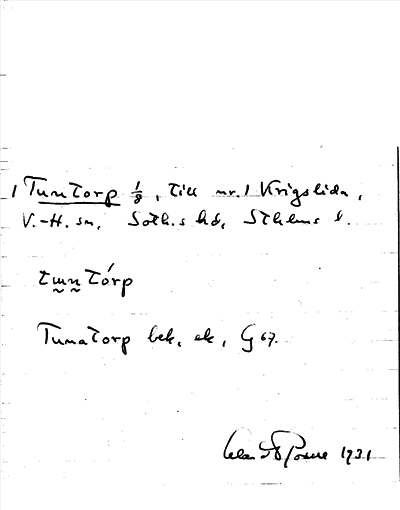 1 Tuntorp 1/8, till nr. 1 Krigslida,
V.-H. sn, Soth.s hd, Sthlms l.
tɯn tórp
Tunatorp bek. ek, G 67.
1931